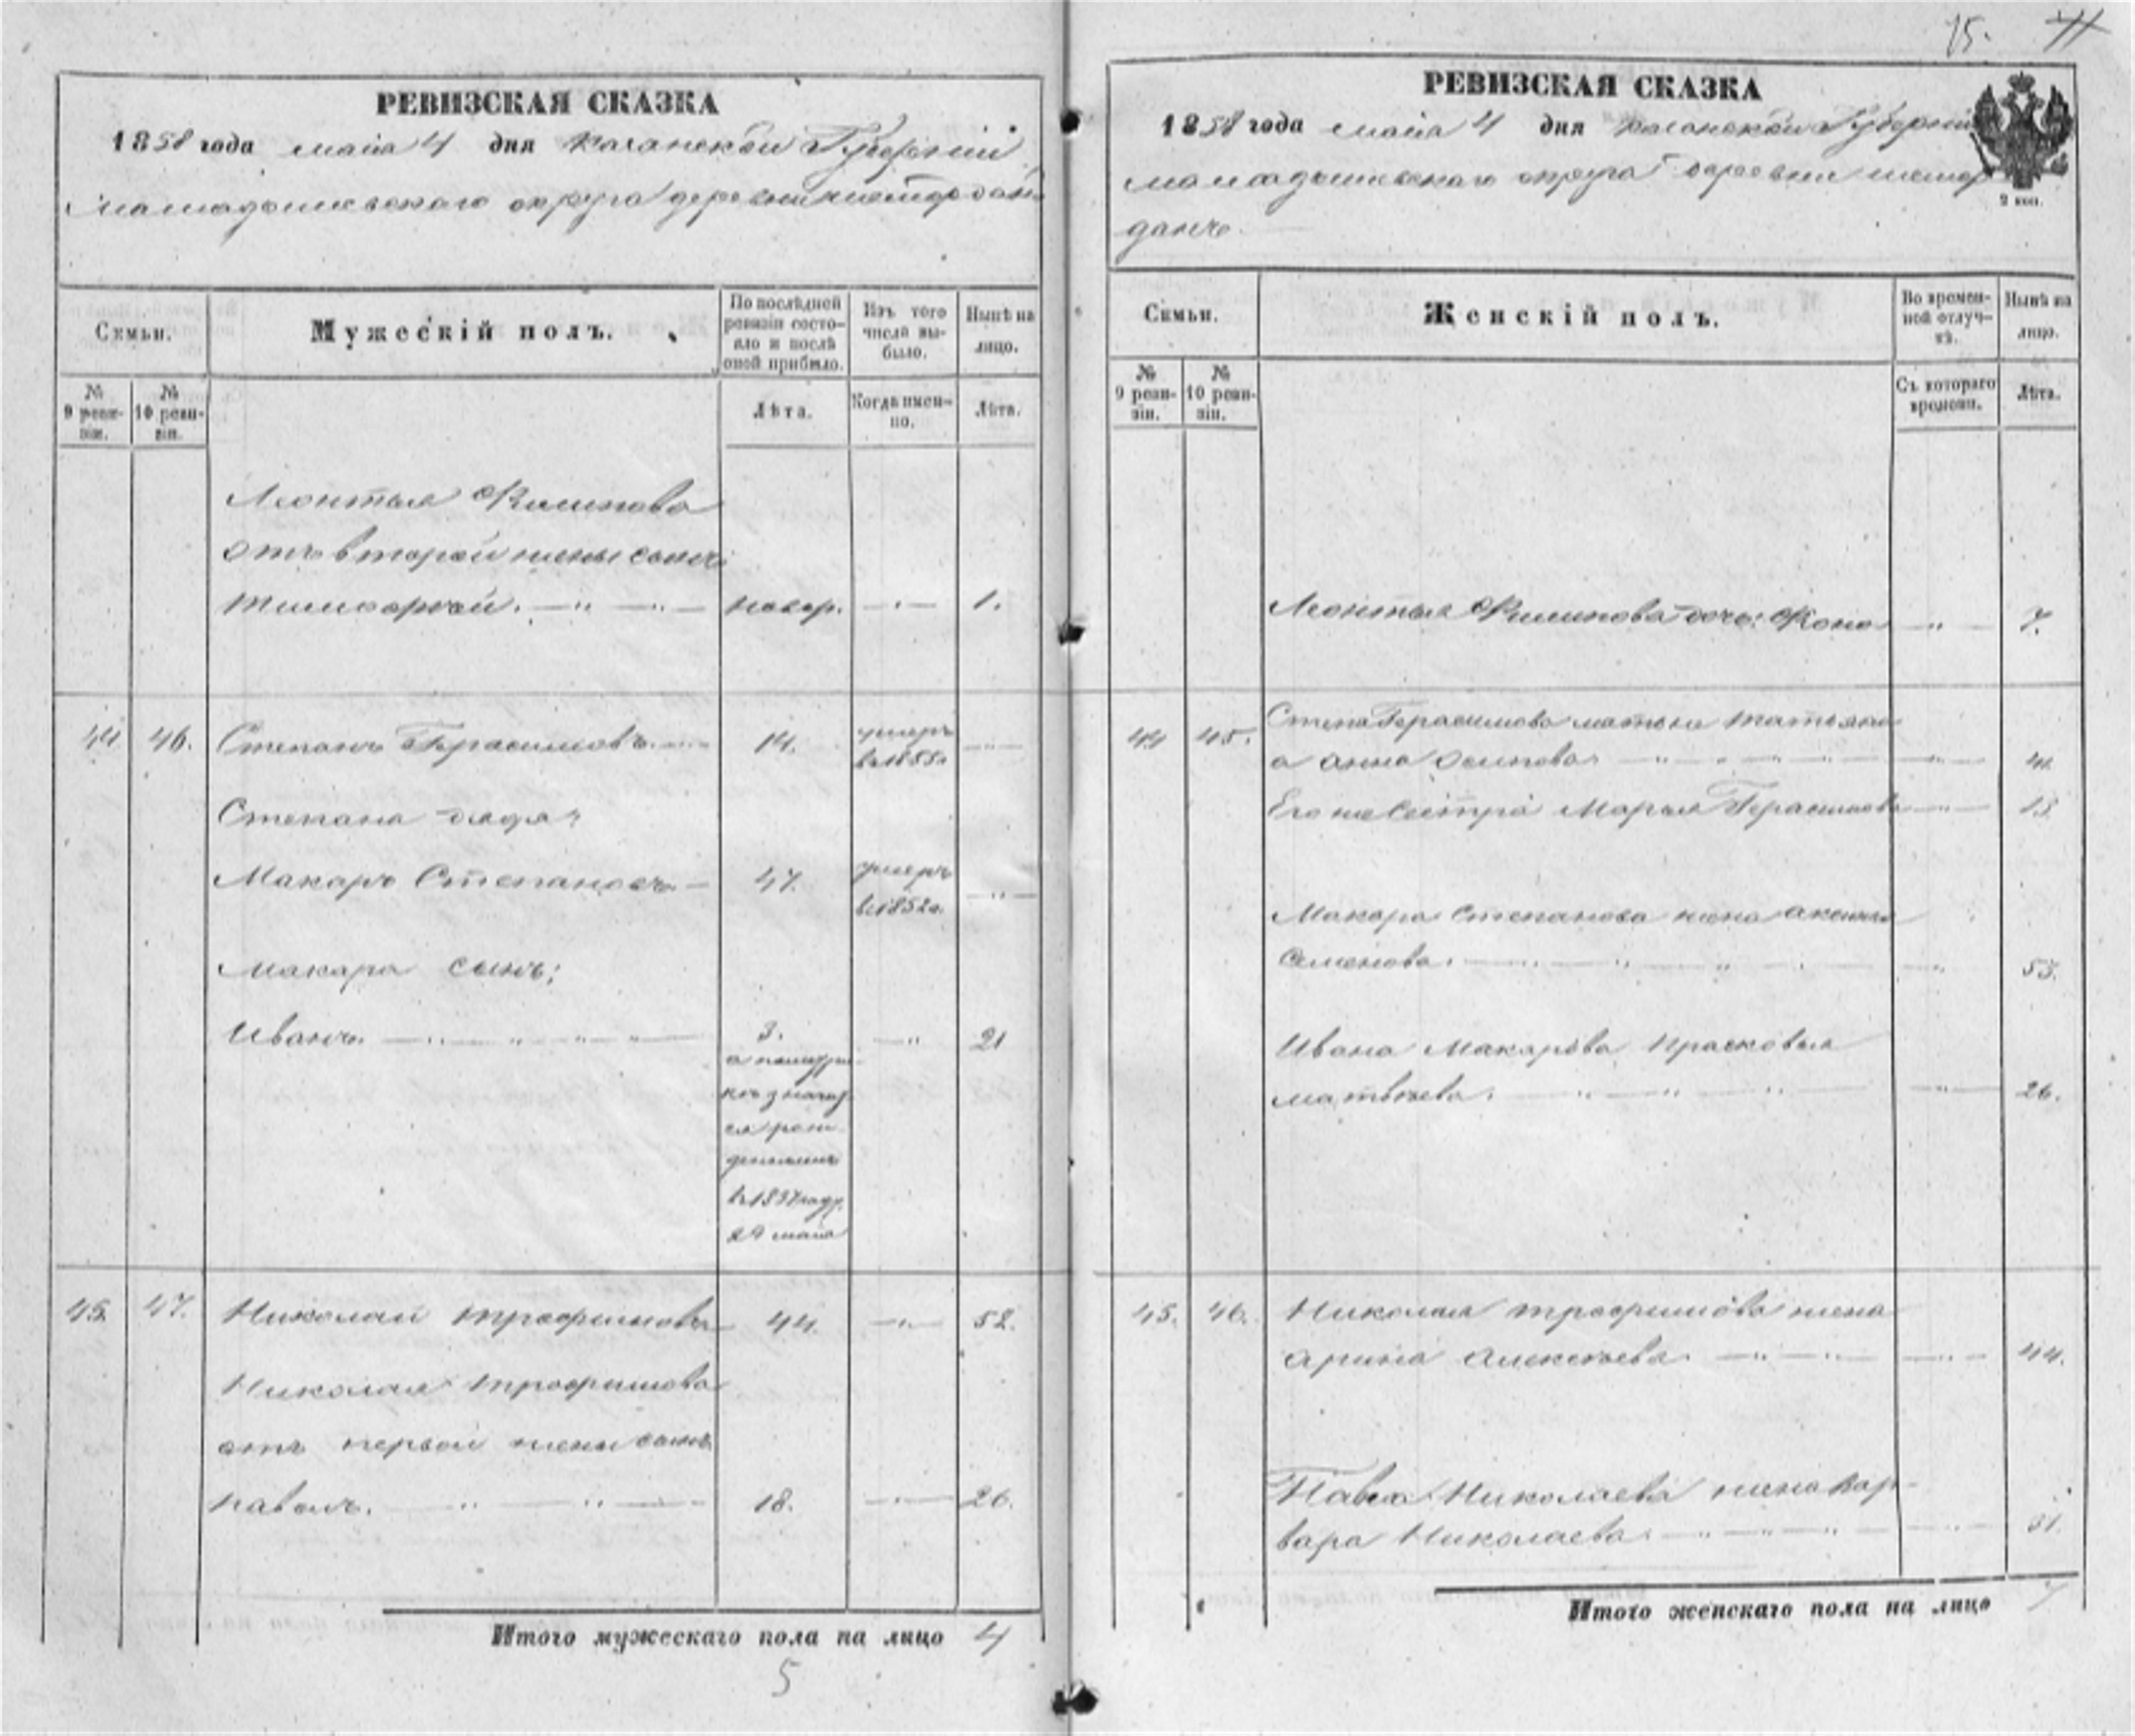 РЕВИЗСКАЯ СКАЗКА
1858 года маія 4 дня Казанской Губерніи
Мамадышевскаго округа деревни
Семьи.
Мужескій полъ.
По послѣдней ревизіи состояло и послѣ оной прибыло.
Изъ того числа выбыло.
Нынѣ на лицо.
№ 9 ревизіи.
№ 10 ревизіи.
Лѣта.
Когда именно.
Лѣта.
Леонтья Филипова
отъ второй жены сынъ
Тимофей. новор. 1.
44 46. Степанъ Герасимовъ 14. умеръ въ 1855.
Степана дядя
Макаръ Степановъ 47. умеръ въ 1852.
Макара сынъ:
Иванъ. 3. 21
а по
въ 1837 году
29 маія
45. 47. Николай Трофимовъ 44. 52.
Николая Трофимова
отъ первой жены сынъ
Павелъ. 18. 26.
Итого мужескаго пола на лицо 4
5
15.
РЕВИЗСКАЯ СКАЗКА
1858 года маія 4 дня Казанской Губерніи
Мамадышевскаго округа деревни шемор
данъ
2 коп.
Семьи.
Женскій полъ.
Во временной отлучкѣ.
Нынѣ на лицо.
№ 9 ревизіи.
№ 10 ревизіи.
Съ котораго времени.
Лѣта.
Леонтья Филипова дочь: 7.
44 45. Степа Герасимова матьки Татьяна
а Анна Осипова 41.
Его же сестра Марья Герасимова 15.
Макара Степанова жена
Семенова. 55.
Ивана Макарова Прасковья
Матвѣева. 26.
45. 46. Николая Трофимова жена
Арина Алексѣева. 44.
Павла Николаева жена Вар-
вара Николаева. 31.
Итого женскаго пола на лицо 7